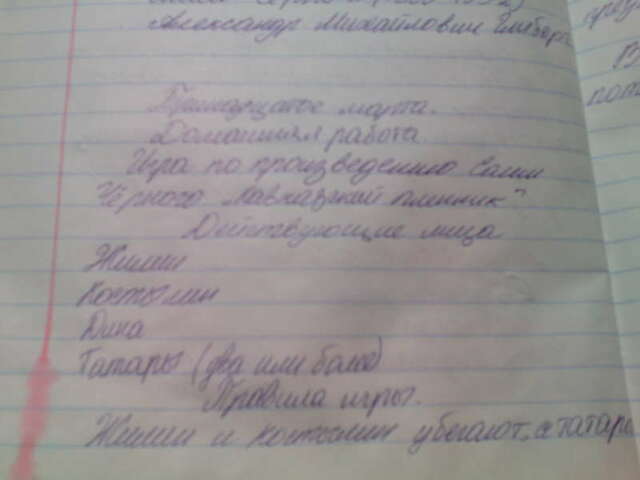 Александр Михайлович
марта.
Домашняя работа.
Игра по произведению Саши
Чёрного "Кавказкий пленник"
Действующие лица
Жилин
Костылин
Дина
Татары (два или более)
Правила игры.
Жилин и Костылин убегают, а татары